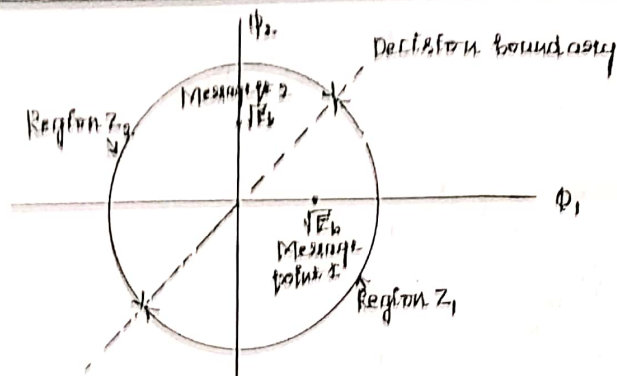 ϕ₂
Decision boundary
Message 2
√E_b
Region Z₂
ϕ₁
√E_b
Message
point 1
Region Z₁